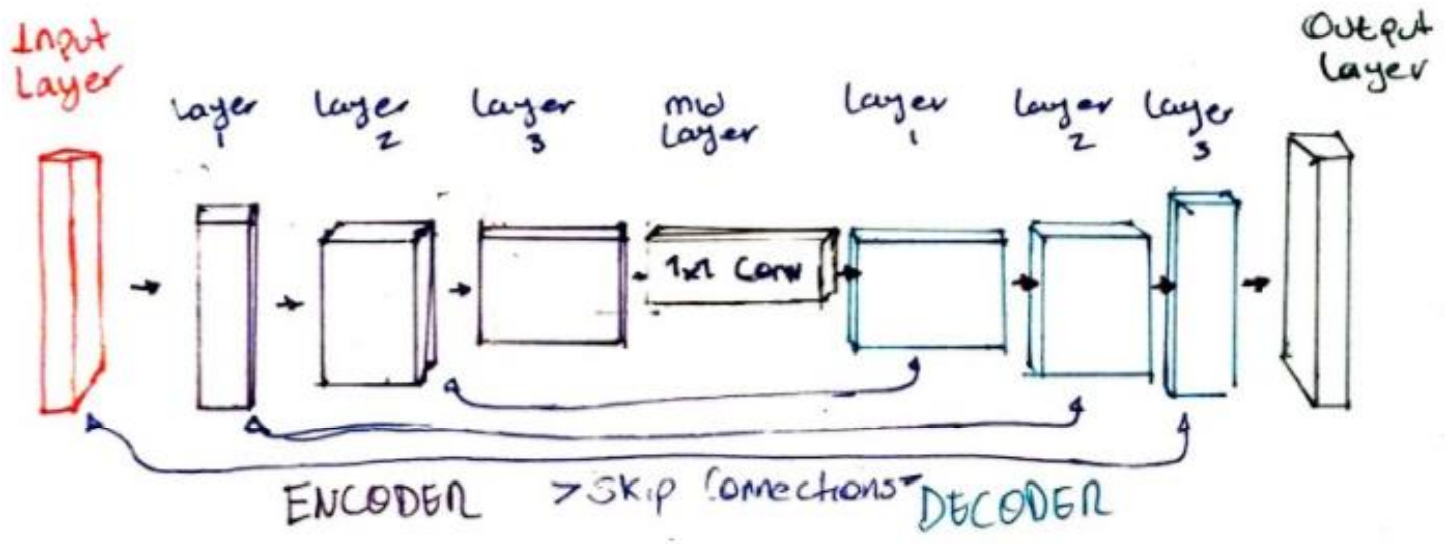 Input
Layer
Layer
1
Layer
2
Layer
3
mid
Layer
Layer
1
Layer
2
Layer
3
Output
Layer
1x1 Conv
ENCODER
>Skip Connections
DECODER